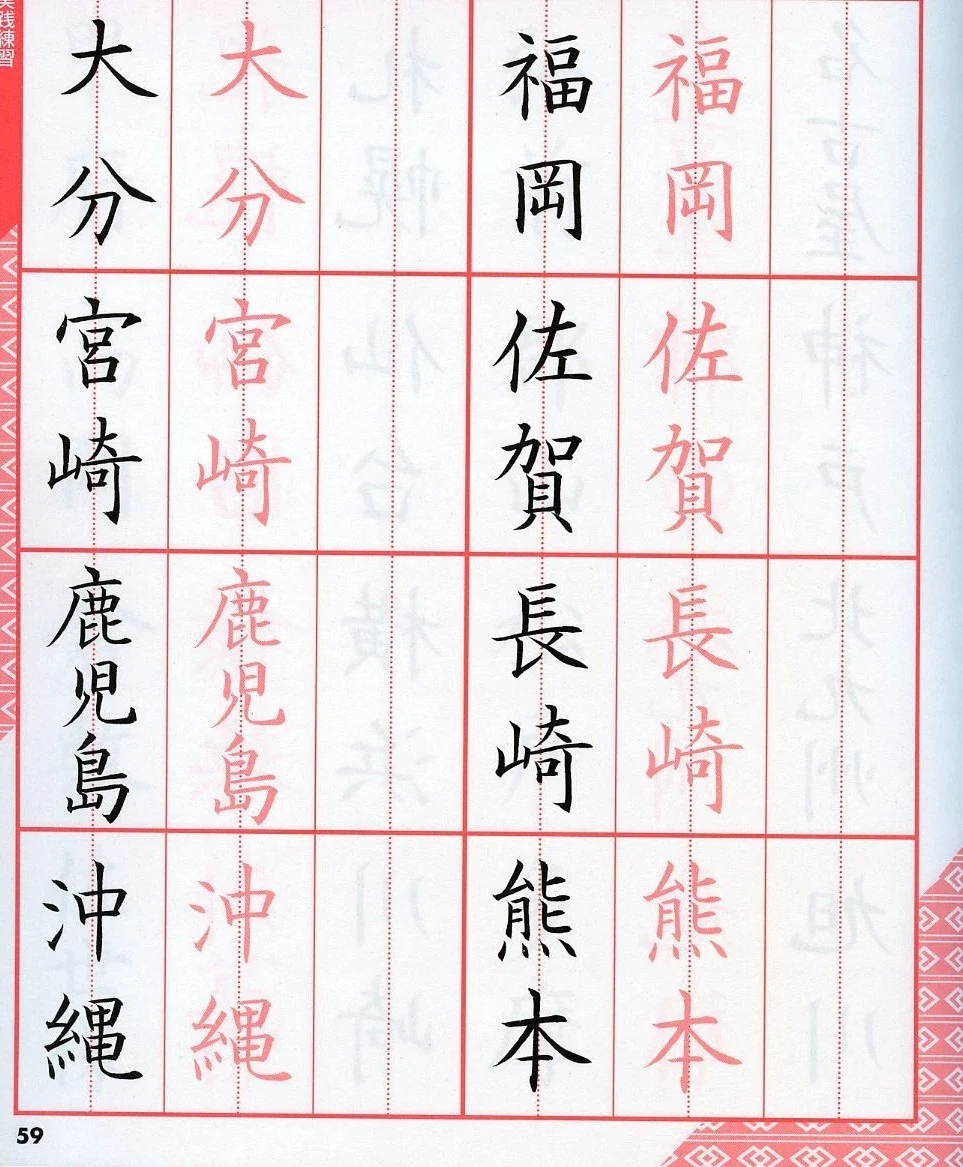 実践練習
福岡
福岡
佐賀
佐賀
長崎
長崎
熊本
熊本
大分
大分
宮崎
宮崎
鹿児島
鹿児島
沖縄
沖縄
59